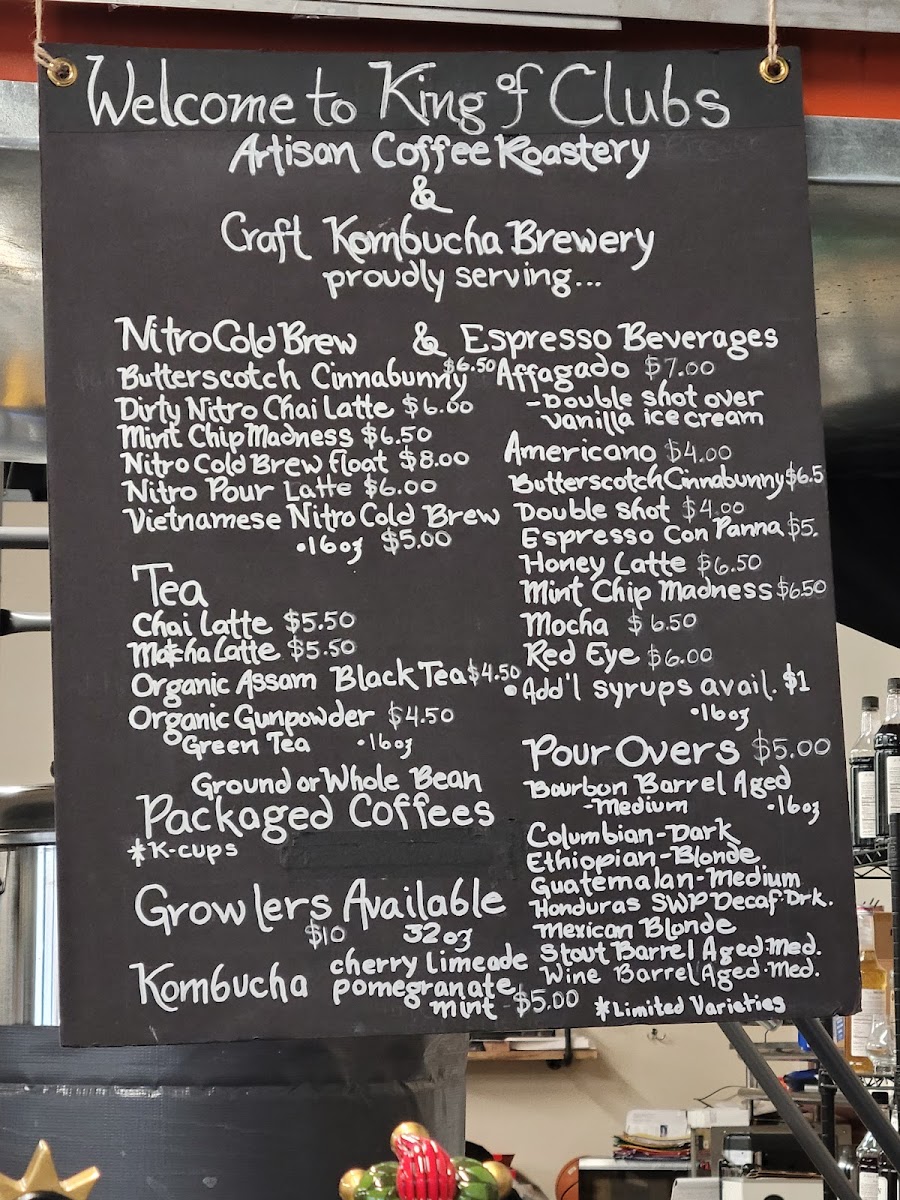 Welcome to King of Clubs
Artisan Coffee Roastery
&
Craft Kombucha Brewery
proudly serving...
Nitro Cold Brew & Espresso Beverages
Butterscotch Cinnabunny $6.50
Dirty Nitro Chai Latte $6.00
Mint Chip Madness $6.50
Nitro Cold Brew float $8.00
Nitro Pour Latte $6.00
Vietnamese Nitro Cold Brew
•16oz $5.00
Tea
Chai Latte $5.50
Matcha Latte $5.50
Organic Assam Black Tea $4.50
Organic Gunpowder $4.50
Green Tea •16oz
Ground or Whole Bean
Packaged Coffees
*K-cups
Growlers Available
$10 32oz
Kombucha cherry limeade
pomegranate
mint - $5.00
Affagado $7.00
-Double shot over
vanilla ice cream
Americano $4.00
Butterscotch Cinnabunny $6.5
Double shot $4.00
Espresso Con Panna $5.
Honey Latte $6.50
Mint Chip Madness $6.50
Mocha $6.50
Red Eye $6.00
•Add'l syrups avail. $1
•16oz
Pour Overs $5.00
Bourbon Barrel Aged
-Medium •16oz
Columbian-Dark
Ethiopian-Blonde
Guatemalan-Medium
Honduras SWP Decaf-Drk.
Mexican Blonde
Stout Barrel Aged-Med.
Wine Barrel Aged-Med.
*Limited Varieties